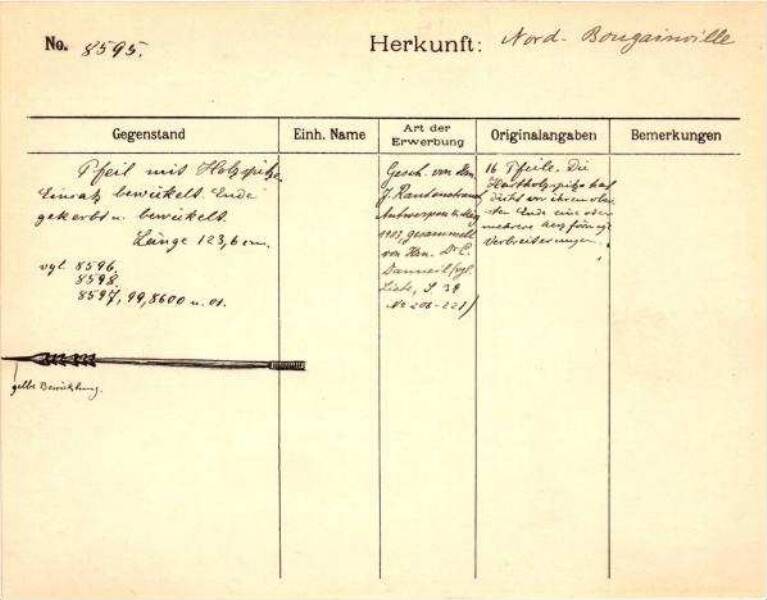 No. 8595.
Herkunft: Nord-Bougainville
Gegenstand
Einh. Name
Art der Erwerbung
Originalangaben
Bemerkungen
Pfeil mit Holzspitze
Einsatz bewickelt. Ende
gekerbt u. bewickelt.
Länge 123,6 cm.
vgl. 8596.
8598.
8597, 99, 8600 u. 01.
gelbe Bewicklung.
Gesch. von Hrn.
J.
Antwerpen
1907, gesammelt
von Hrn. Dr. E.
Danneil (vgl.
Liste, S 39
No 208-223)
16 Pfeile. Die
Hartholzspitze hat
dicht vor ihrem ober-
sten Ende eine oder
mehrere herzförmige
Verbreiterungen.